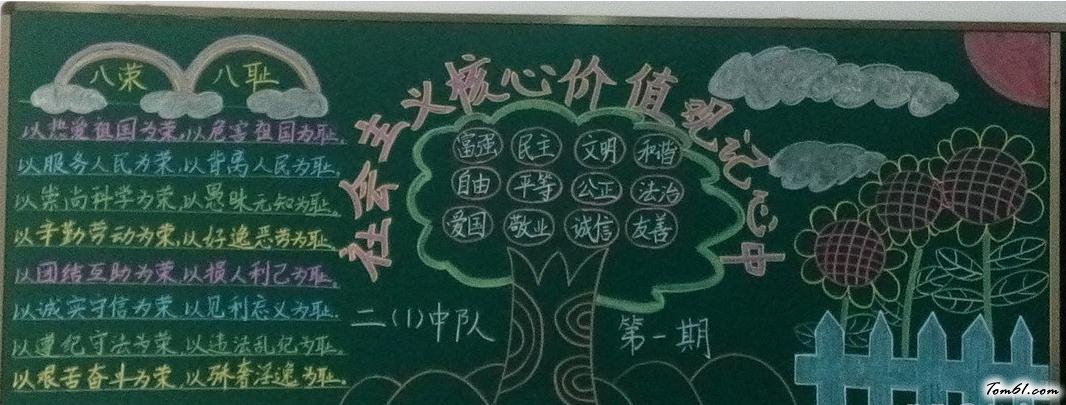 八荣 八耻
以热爱祖国为荣,以危害祖国为耻,
以服务人民为荣,以背离人民为耻,
以崇尚科学为荣,以愚昧无知为耻,
以辛勤劳动为荣,以好逸恶劳为耻,
以团结互助为荣,以损人利己为耻,
以诚实守信为荣,以见利忘义为耻,
以遵纪守法为荣,以违法乱纪为耻,
以艰苦奋斗为荣,以骄奢淫逸为耻.
社会主义核心价值观记心中
富强 民主 文明 和谐
自由 平等 公正 法治
爱国 敬业 诚信 友善
二(1)中队 第一期
Tom61.com